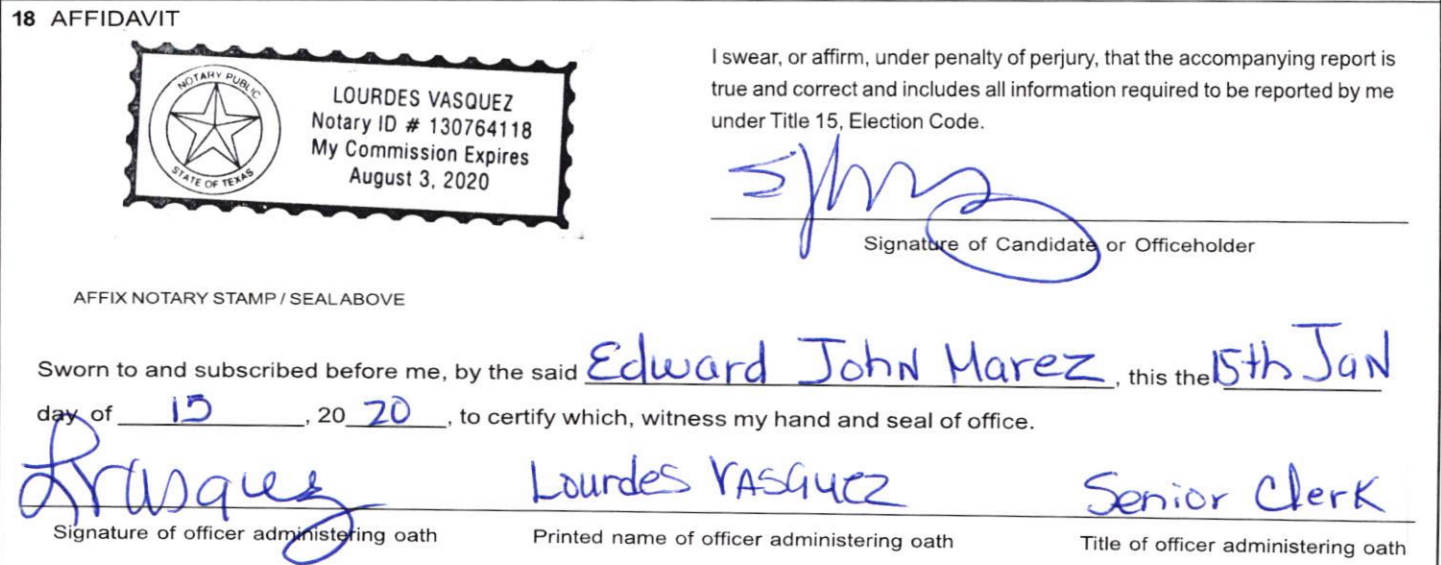 18 AFFIDAVIT
NOTARY PUBLIC
STATE OF TEXAS
LOURDES VASQUEZ
Notary ID # 130764118
My Commission Expires
August 3, 2020
I swear, or affirm, under penalty of perjury, that the accompanying report is
true and correct and includes all information required to be reported by me
under Title 15, Election Code.
Signature of Candidate or Officeholder
AFFIX NOTARY STAMP / SEAL ABOVE
Sworn to and subscribed before me, by the said Edward John Marez, this the 15th Jan
day of 15, 20 20, to certify which, witness my hand and seal of office.
LVasquez Lourdes Vasquez Senior Clerk
Signature of officer administering oath Printed name of officer administering oath Title of officer administering oath